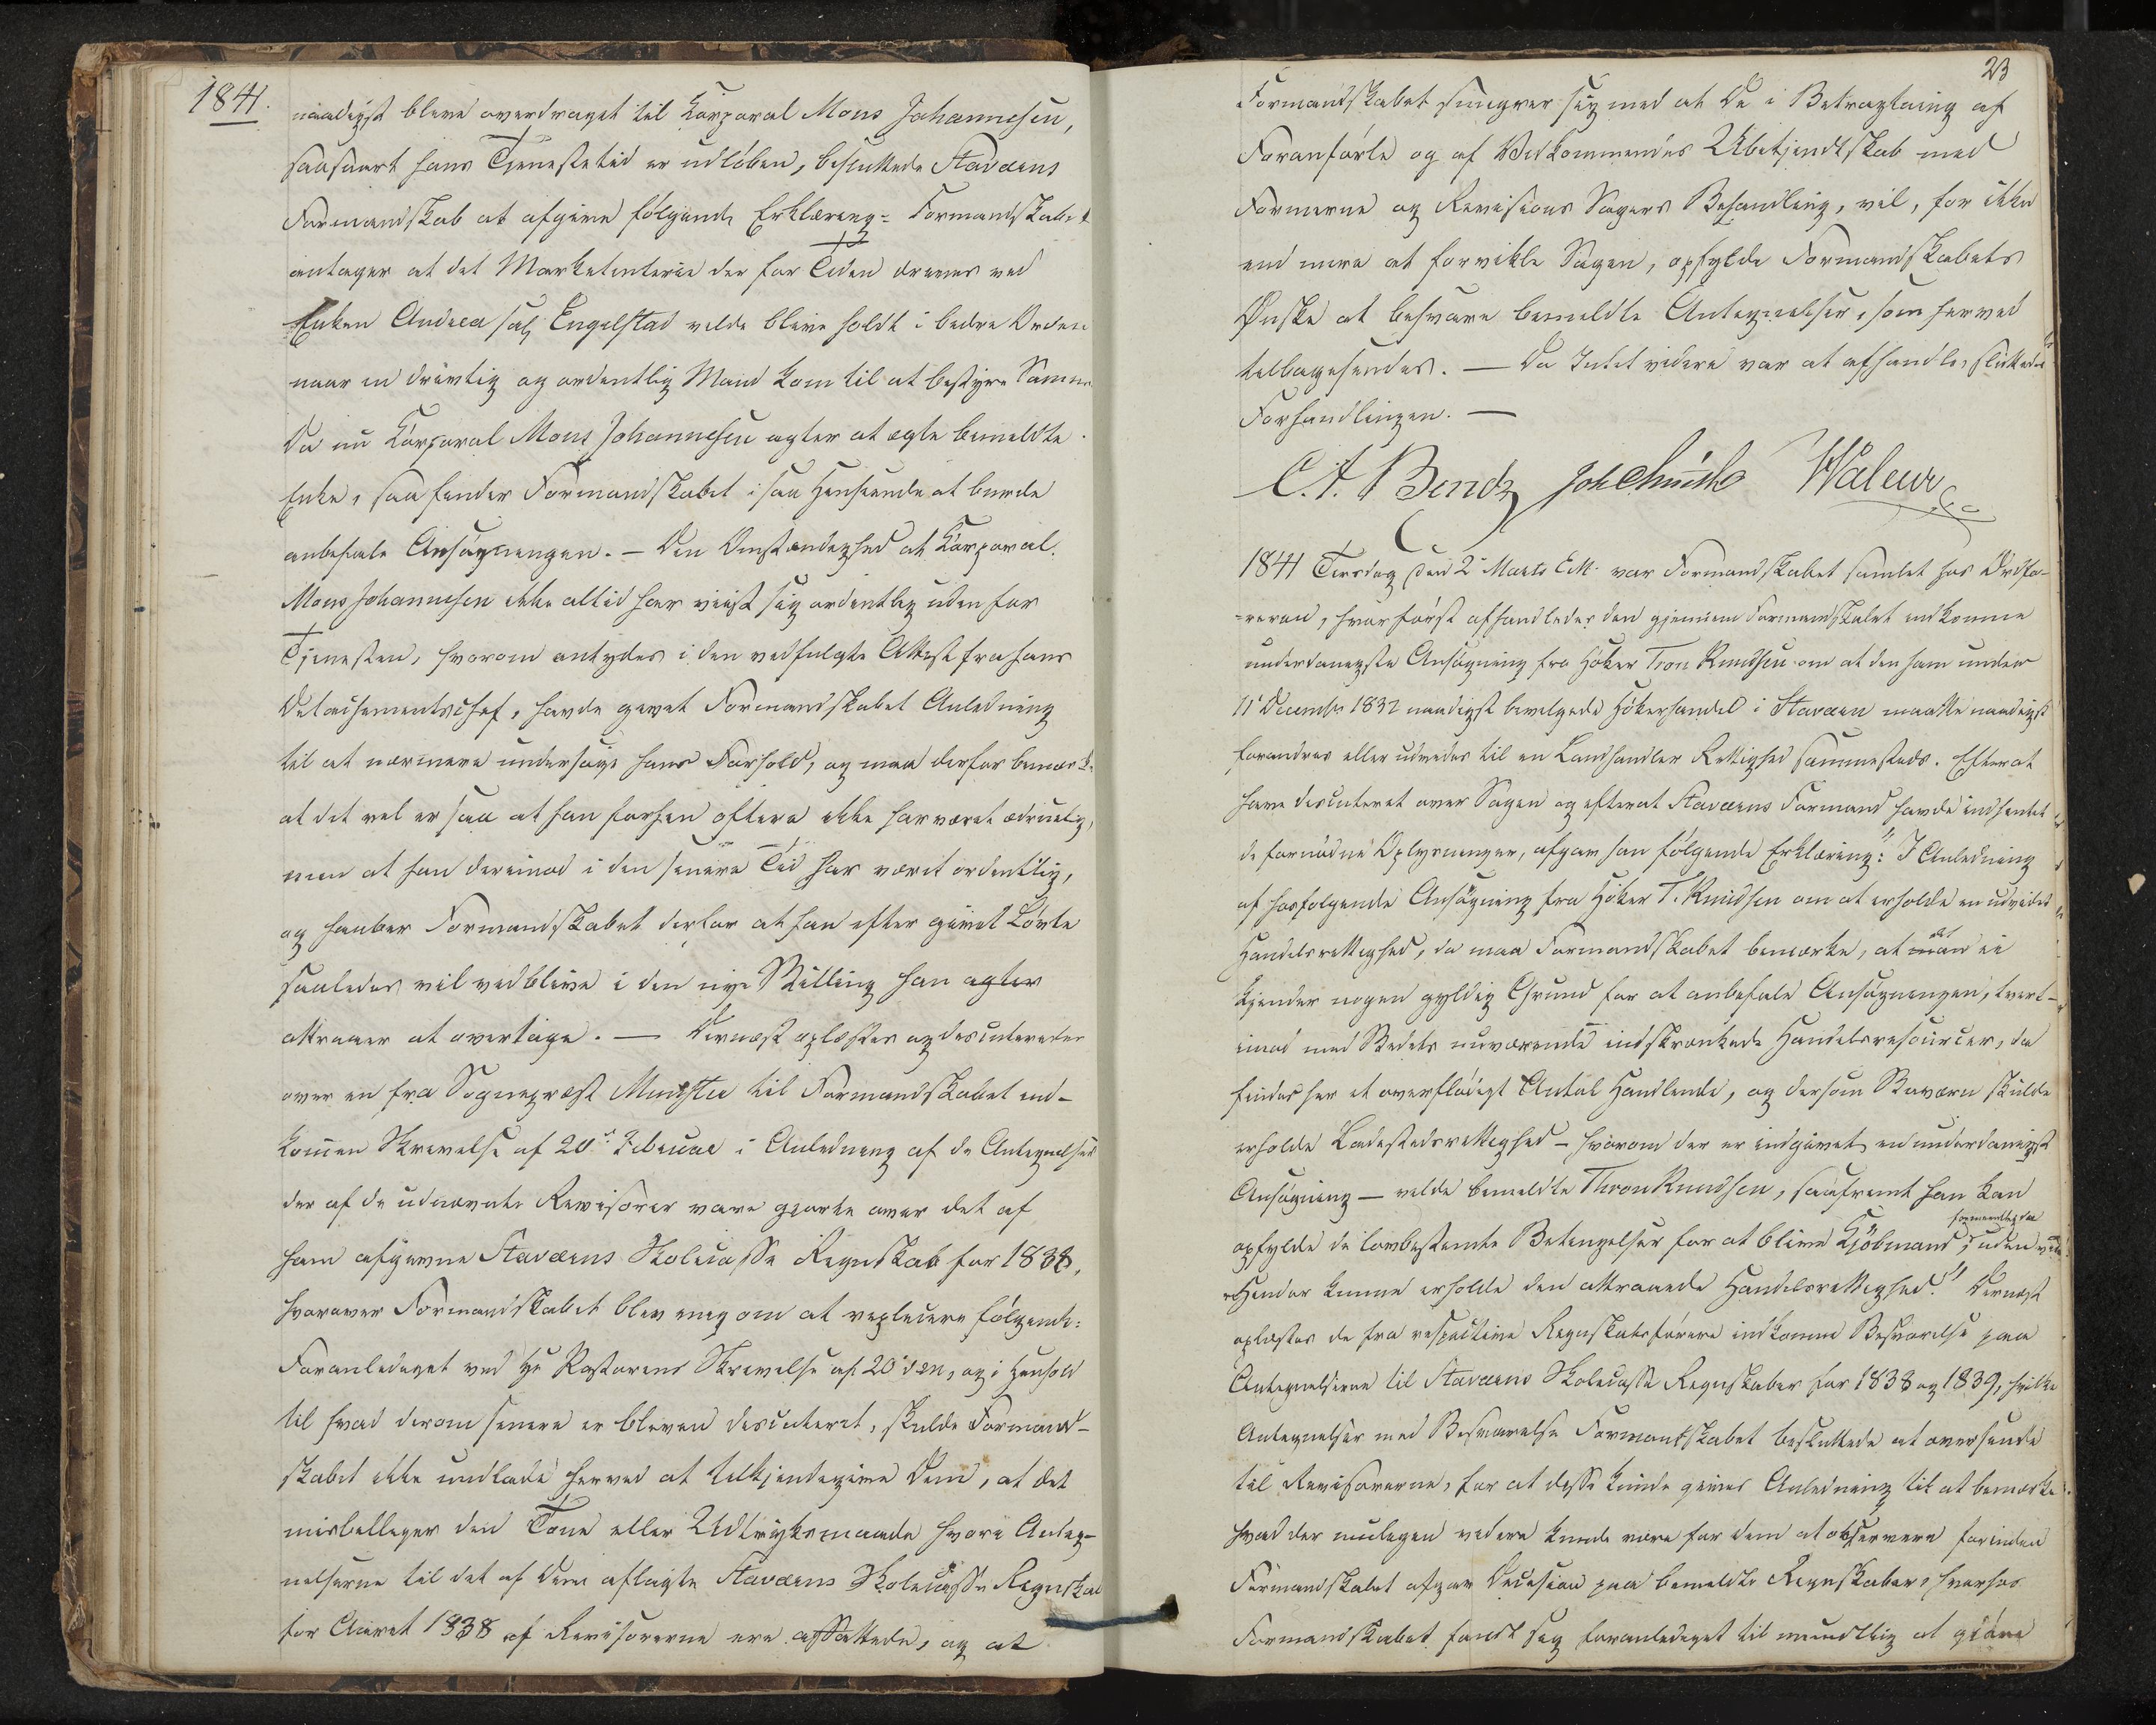 1841.
naadigst bleve overdraget til Korporal Mons Johannesen,
saasnart hans Tjenestetid er udløben, besluttede Staværns
Formandskab at afgive følgende Erklæring: Formandskabet
antager at det Marketenterie der for Tiden drives ved
Enken Andrea sal: Engelstad vilde blive holdt i bedre Orden
naar en drivtig og ordentlig Mand kom til at bestyre Samme
Da nu Korporal Mons Johannesen agter at ægte bemeldte
Enke, saa finder Formandskabet i saa Henseende at burde
anbefale Ansøgningen. – Den Omstændighed at Korporal
Mons Johannesen ikke altid har viist sig ordentlig uden for
Tjenesten, hvorom antydes i den vedfulgte Attest fra hans
Detachementschef, havde givet Formandskabet Anledning
til at nærmere undersøge hans Forhold, og maa derfor bemærke
at det vel er saa at han forhen oftere ikke har været ædruelig,
men at han derimod i den senere Tid har været ordentlig,
og haaber Formandskabet derfor at han efter givet Løvte
saaledes vil vedblive i den nye Stilling han agter
attraaer at overtage. — Dernæst oplæstes og discuteredes
over en fra Sognepræst Münster til Formandskabet ind-
kommen Skrivelse af 20de Februar i Anledning af de Antegnelser
der af de udnævnte Revisorer vare gjorte over det af
ham afgivne Staværns Skolecasse Regnskab for 1838,
hvorover Formandskabet blev enig om at replicere følgende:
Foranlediget ved Hr Pastorens Skrivelse af 20de dM, og i Henhold
til hvad derom senere er bleven discuteret, skulde Formand-
skabet ikke undlade herved at tilkjendegive Dem, at det
misbilliger den Tone eller Udtryksmaade hvori Anteg-
nelserne til det af Dem aflagte Staværns Skolecasse Regnskab
for Aaret 1838 af Revisorerne ere affattede, og at
23
Formandskabet smigrer sig med at De i Betragtning af
Foranførte og af Vedkommendes Ubekjendtskab med
Formerne og Revisions Sagers Behandling, vil, for ikke
end mere at forvikle Sagen, opfylde Formandskabets
Ønske at besvare bemeldte Antegnelser, som herved
tilbagesendes. — Da Intet videre var at afhandle, sluttedes
Forhandlingen. —
C. A. Bendz Joh Chünch Waleur
1841 Tirsdag den 2den Marts EM. var Formandskabet samlet hos Ordfø-
=reren, hvor først afhandledes den gjennem Formandskabet indkomne
underdanigste Ansøgning fra Høker Tron Knudsen om at den ham under
11te December 1837 naadigst bevilgede Høkerhandel i Staværn maatte naadigst
forandres eller udvides til en Landhandler Rettighed sammesteds. Efterat
have discuteret over Sagen og efterat Staværns Formand havde indhentet
de fornødne Oplysninger, afgav han følgende Erklæring: "I Anledning
af hosfølgende Ansøgning fra Høker T. Knudsen om at erholde en udvidet
Handelsrettighed, da maa Formandskabet bemærke, at man det ei
kjender nogen gyldig Grund for at anbefale Ansøgningen, tvert-
imod med Stedets nuværende indskrænkede Handelsresourcer, da
findes her et overflødigt Antal Handlende, og dersom Staværn skulde
erholde Ladestedsrettighed – hvorom der er indgivet en underdanigst
Ansøgning – vilde bemeldte Thron Knudsen, saafremt han kan
opfylde de lovbestemte Betingelser for at blive Kjøbmand, formeentlig da uden videre
Hinder kunne erholde den attraaede Handelsrettighed." Dernæst
oplæstes de fra respective Regnskabsførere indkomne Besvarelse paa
Antegnelserne til Staværns Skolecasse Regnskaber for 1838 og 1839, hvilke
Antegnelser med Besvarelse Formandskabet besluttede at oversende
til Revisorerne, for at disse kunde gives Anledning til at bemærke
hvad der muligen videre kunde være for dem at observere forinden
Formandskabet afgav Decision paa bemeldte Regnskaber, hvorhos
Formandskabet fandt sig foranlediget til mundtlig at gjøre